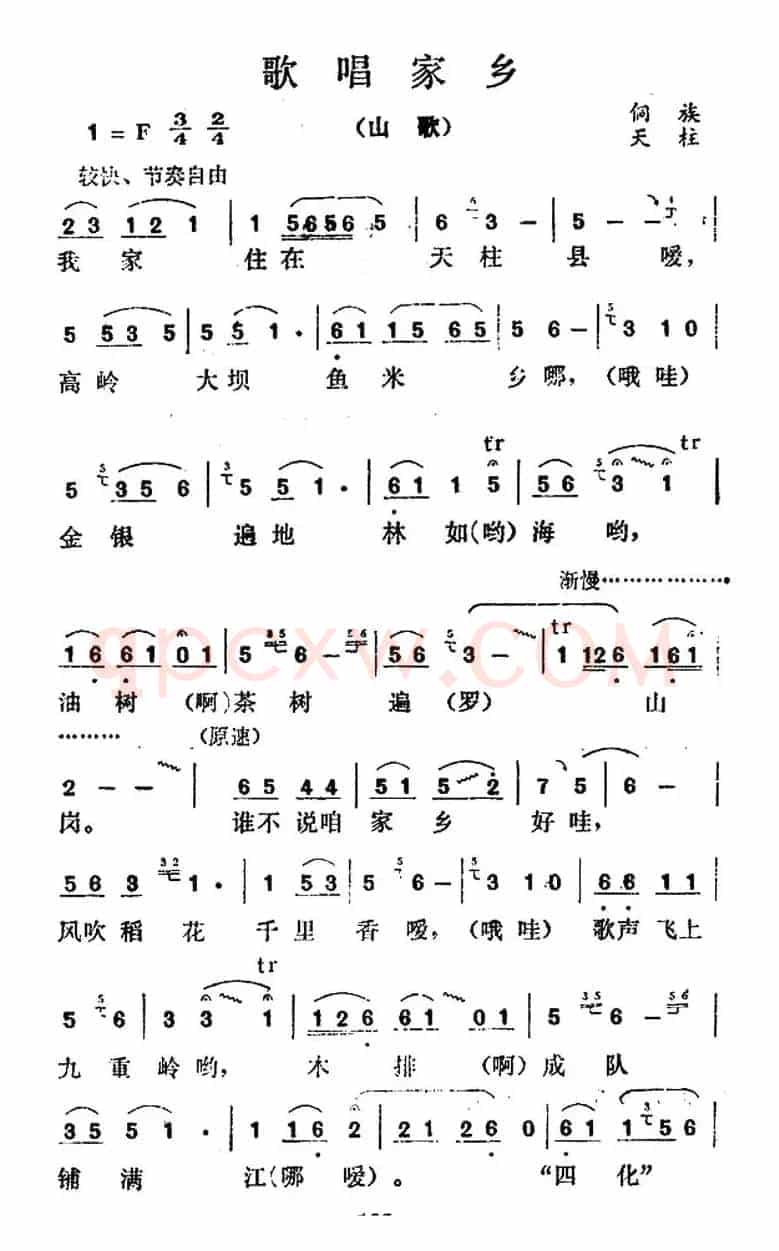 歌唱家乡
1=F 3/4 2/4 (山歌) 侗族
天柱
较快、节奏自由
2 3 1 2 1 | 1 5 6 5 6 5 | 6 3 - | 5 - -
我家 住在 天柱县嗳,
5 5 3 5 | 5 5 1 · | 6 1 1 5 6 5 | 5 6 - | 3 1 0
高岭 大坝 鱼米 乡哪,(哦哇)
tr tr
5 3 5 6 | 5 5 1 · | 6 1 1 5 | 5 6 3 1
金银 遍地 林如(哟)海哟,
渐慢
tr
1 6 6 1 0 1 | 5 6 - | 5 6 3 - | 1 1 2 6 1 6 1
油树(啊)茶树遍(罗) 山
(原速)
2 - - | 6 5 4 4 | 5 1 5 2 | 7 5 | 6 -
岗。 谁不说咱家乡 好哇,
5 6 3 1 · | 1 5 3 | 5 6 - | 3 1 0 | 6 6 1 1
风吹稻花 千里香嗳,(哦哇)歌声飞上
tr
5 6 | 3 3 1 | 1 2 6 6 1 0 1 | 5 6 -
九重岭哟, 木排 (啊)成队
3 5 5 1 · | 1 1 6 2 | 2 1 2 6 0 | 6 1 1 5 6
铺满 江(哪嗳)。 “四化”
qpcxw.COM